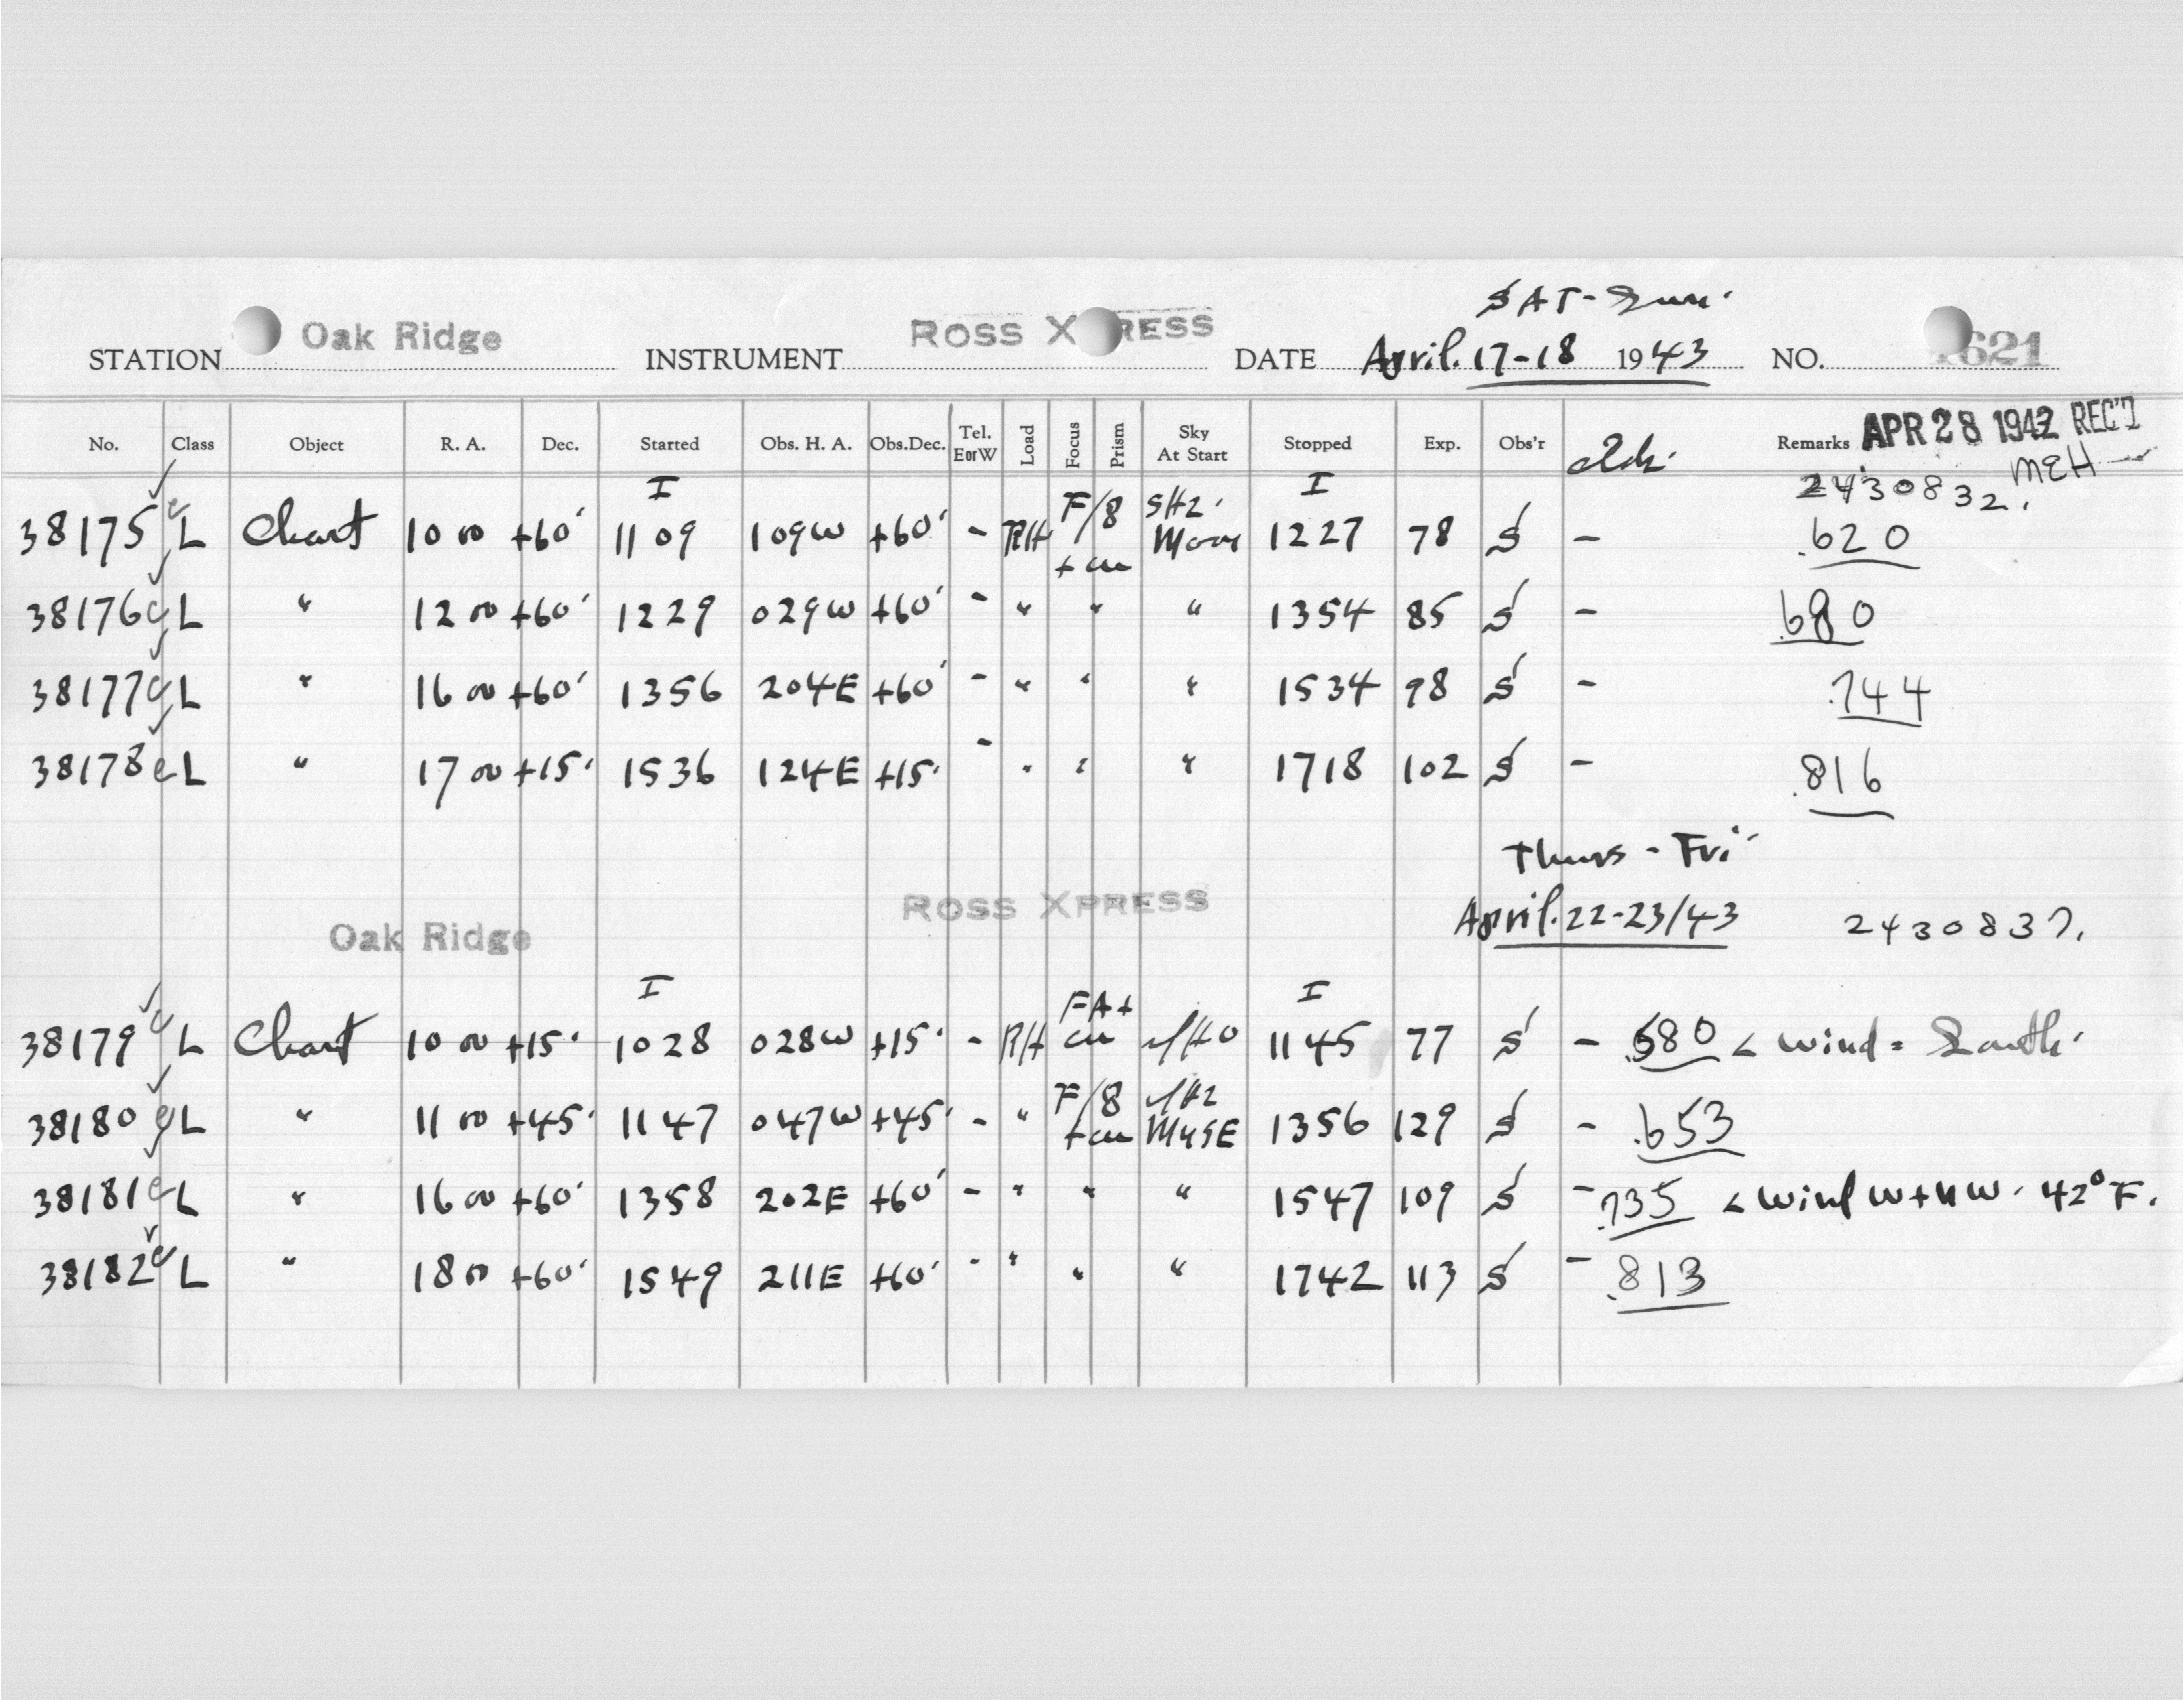 SAT-Sun.
STATION Oak Ridge INSTRUMENT ROSS XPRESS DATE April. 17-18 1943 NO. 621
No. Class Object R. A. Dec. Started Obs. H. A. Obs.Dec. Tel. EorW Load Focus Prism Sky At Start Stopped Exp. Obs'r Remarks APR 28 1942 REC'D
MEH
I I 2430832.
38175 L Chart 10 00 +60 1109 109W +60 - RH F/8 + cu SH2. Moon 1227 78 S - .620
38176 L " 12 00 +60 1229 029W +60 - " " " 1354 85 S - .680
38177 L " 16 00 +60 1356 204E +60 - " " " 1534 98 S - .744
38178 L " 17 00 +15 1536 124E +15 - " " " 1718 102 S - .816
Thurs - Fri
Oak Ridge ROSS XPRESS April. 22-23/43 2430837.
I I
38179 L Chart 10 00 +15 1028 028W +15 - RH FA+ cu 1145 77 S - .580 < wind = South.
38180 L " 11 00 +45 1147 047W +45 - " F/8 + cu 1356 129 S - .653
38181 L " 16 00 +60 1358 202E +60 - " " " 1547 109 S - .735 < wind W + NW. 42°F.
38182 L " 18 00 +60 1549 211E +60 - " " " 1742 113 S - .813